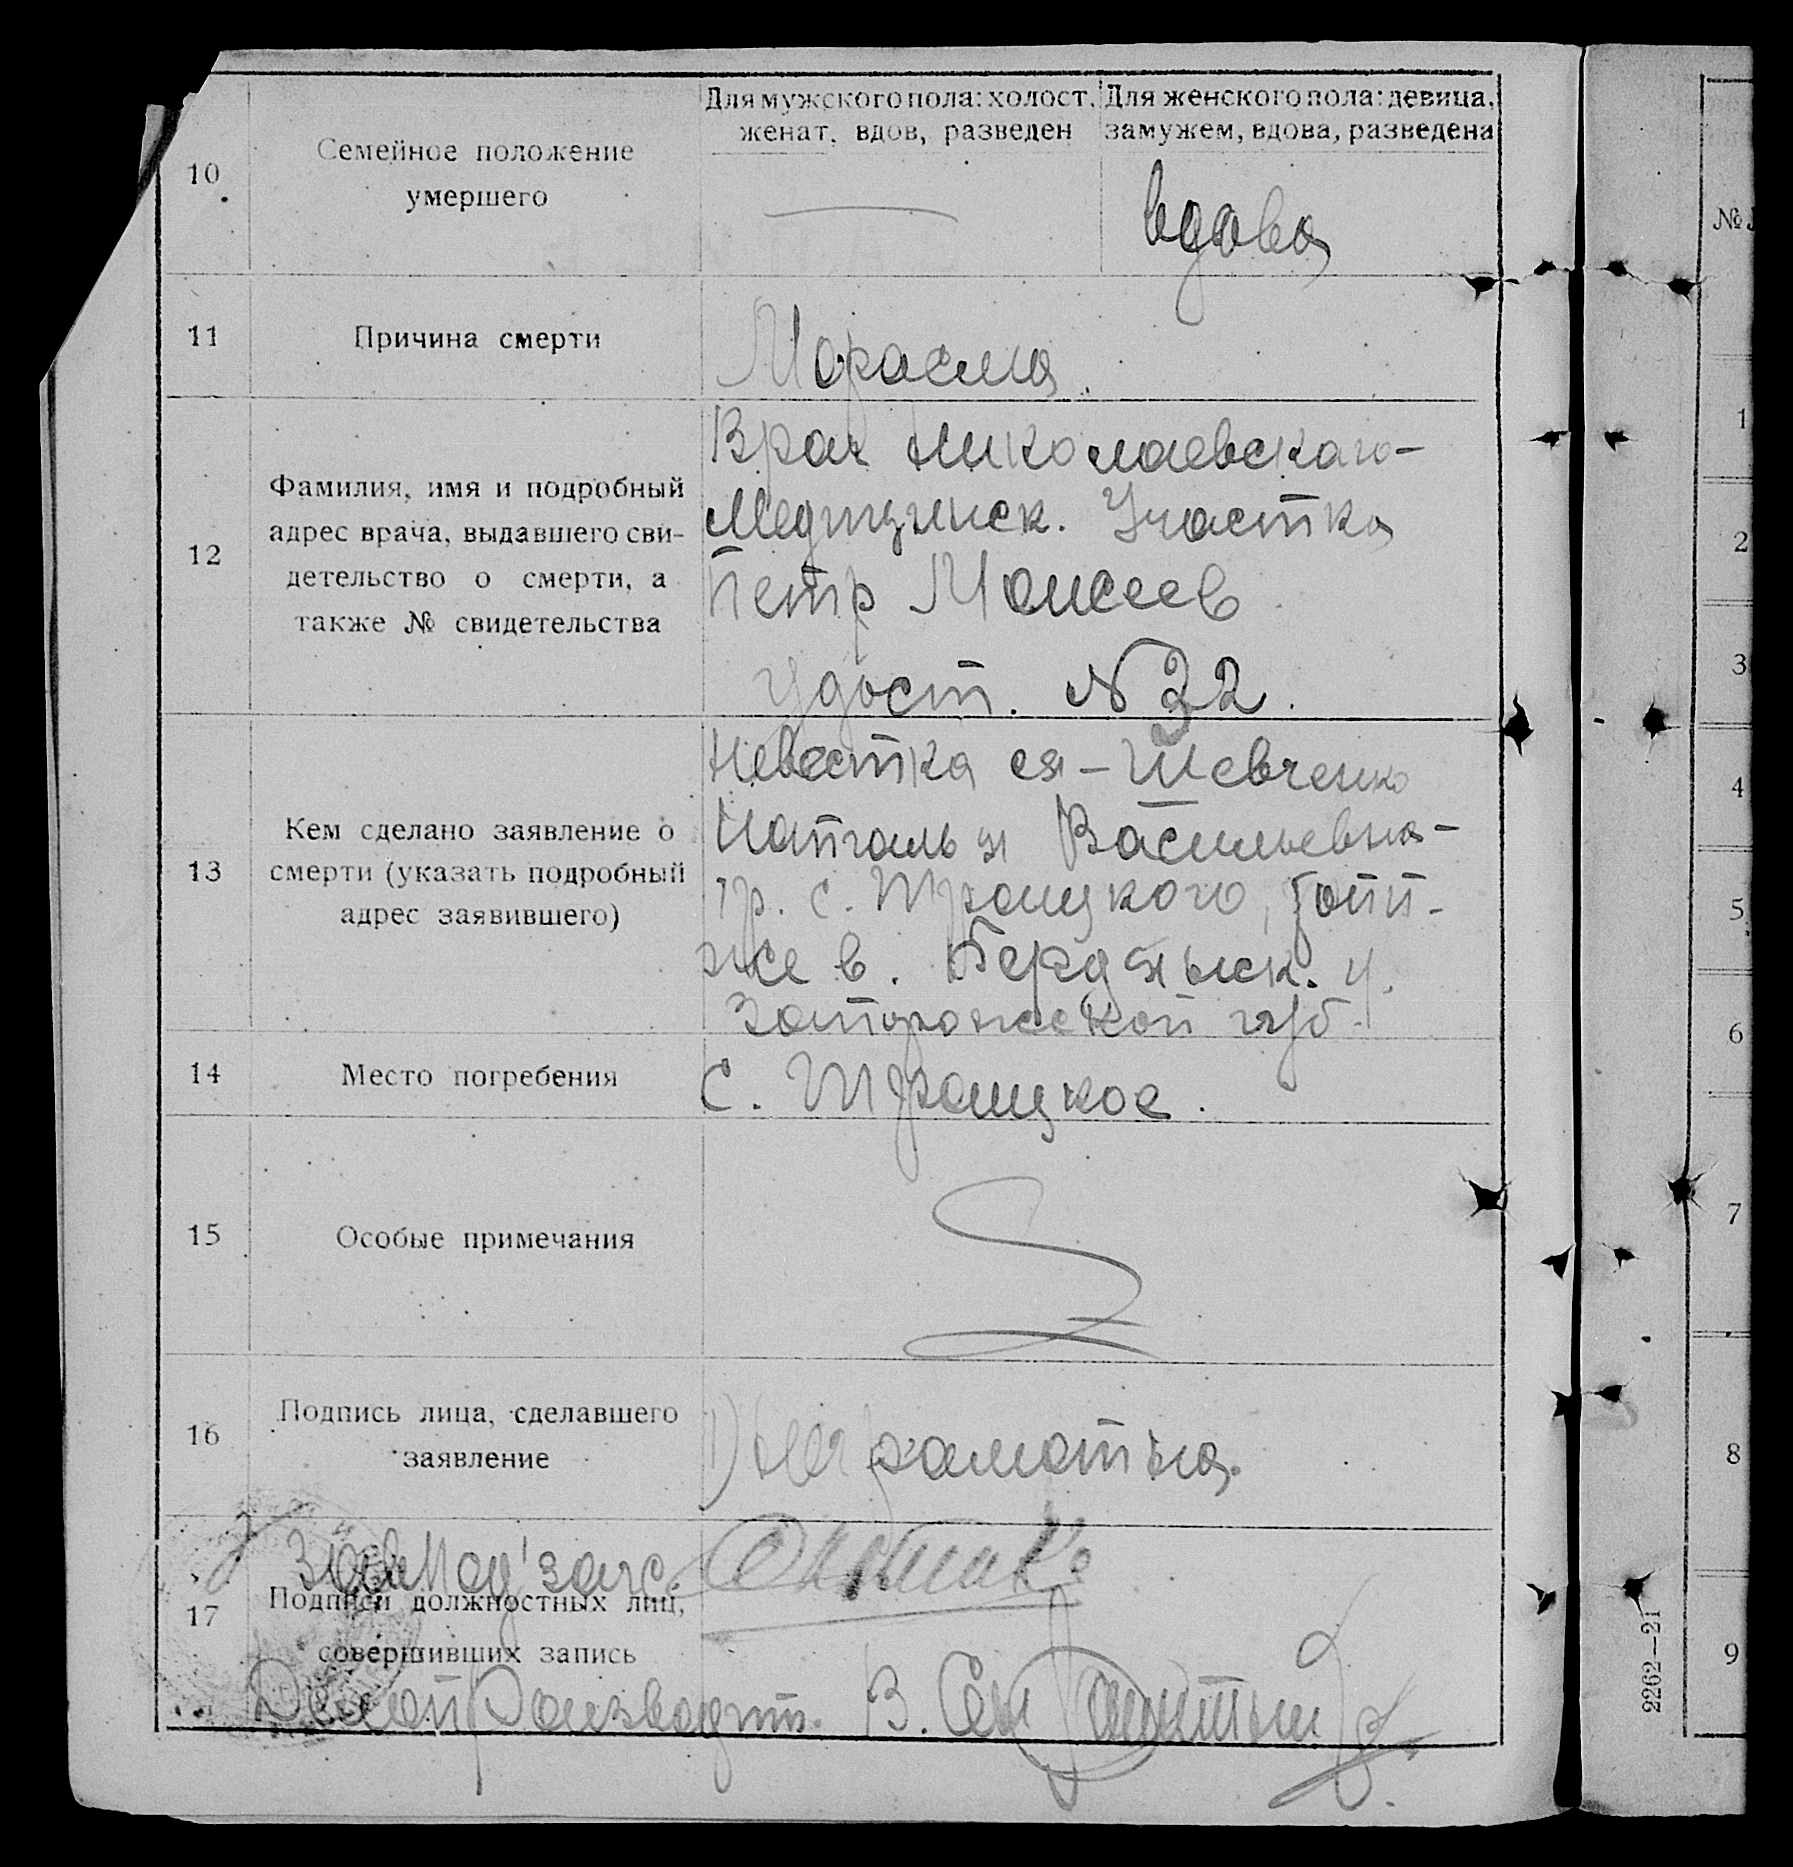 Для мужского пола: холост, женат, вдов, разведен
Для женского пола: девица, замужем, вдова, разведена
10
Семейное положение
умершего
вдова
11
Причина смерти
12
Фамилия, имя и подробный
адрес врача, выдавшего сви-
детельство о смерти, а
также № свидетельства
Врач Николаевскаго-
Медицинск. Участка
Петр Моисеев
Удост. N 32.
13
Кем сделано заявление о
смерти (указать подробный
адрес заявившего)
Невестка ея - Шевченко
Наталья Васильевна -
гр. с. Троицкого,
же в. Бердянск. у.
Запорожской губ.
14
Место погребения
с. Троицкое.
15
Особые примечания
16
Подпись лица, сделавшего
заявление
1) неграмотна.
17
Подписи должностных лиц,
совершивших запись
Делопроизводит. В.
№
1
2
3
4
5
6
7
8
9
2262—21